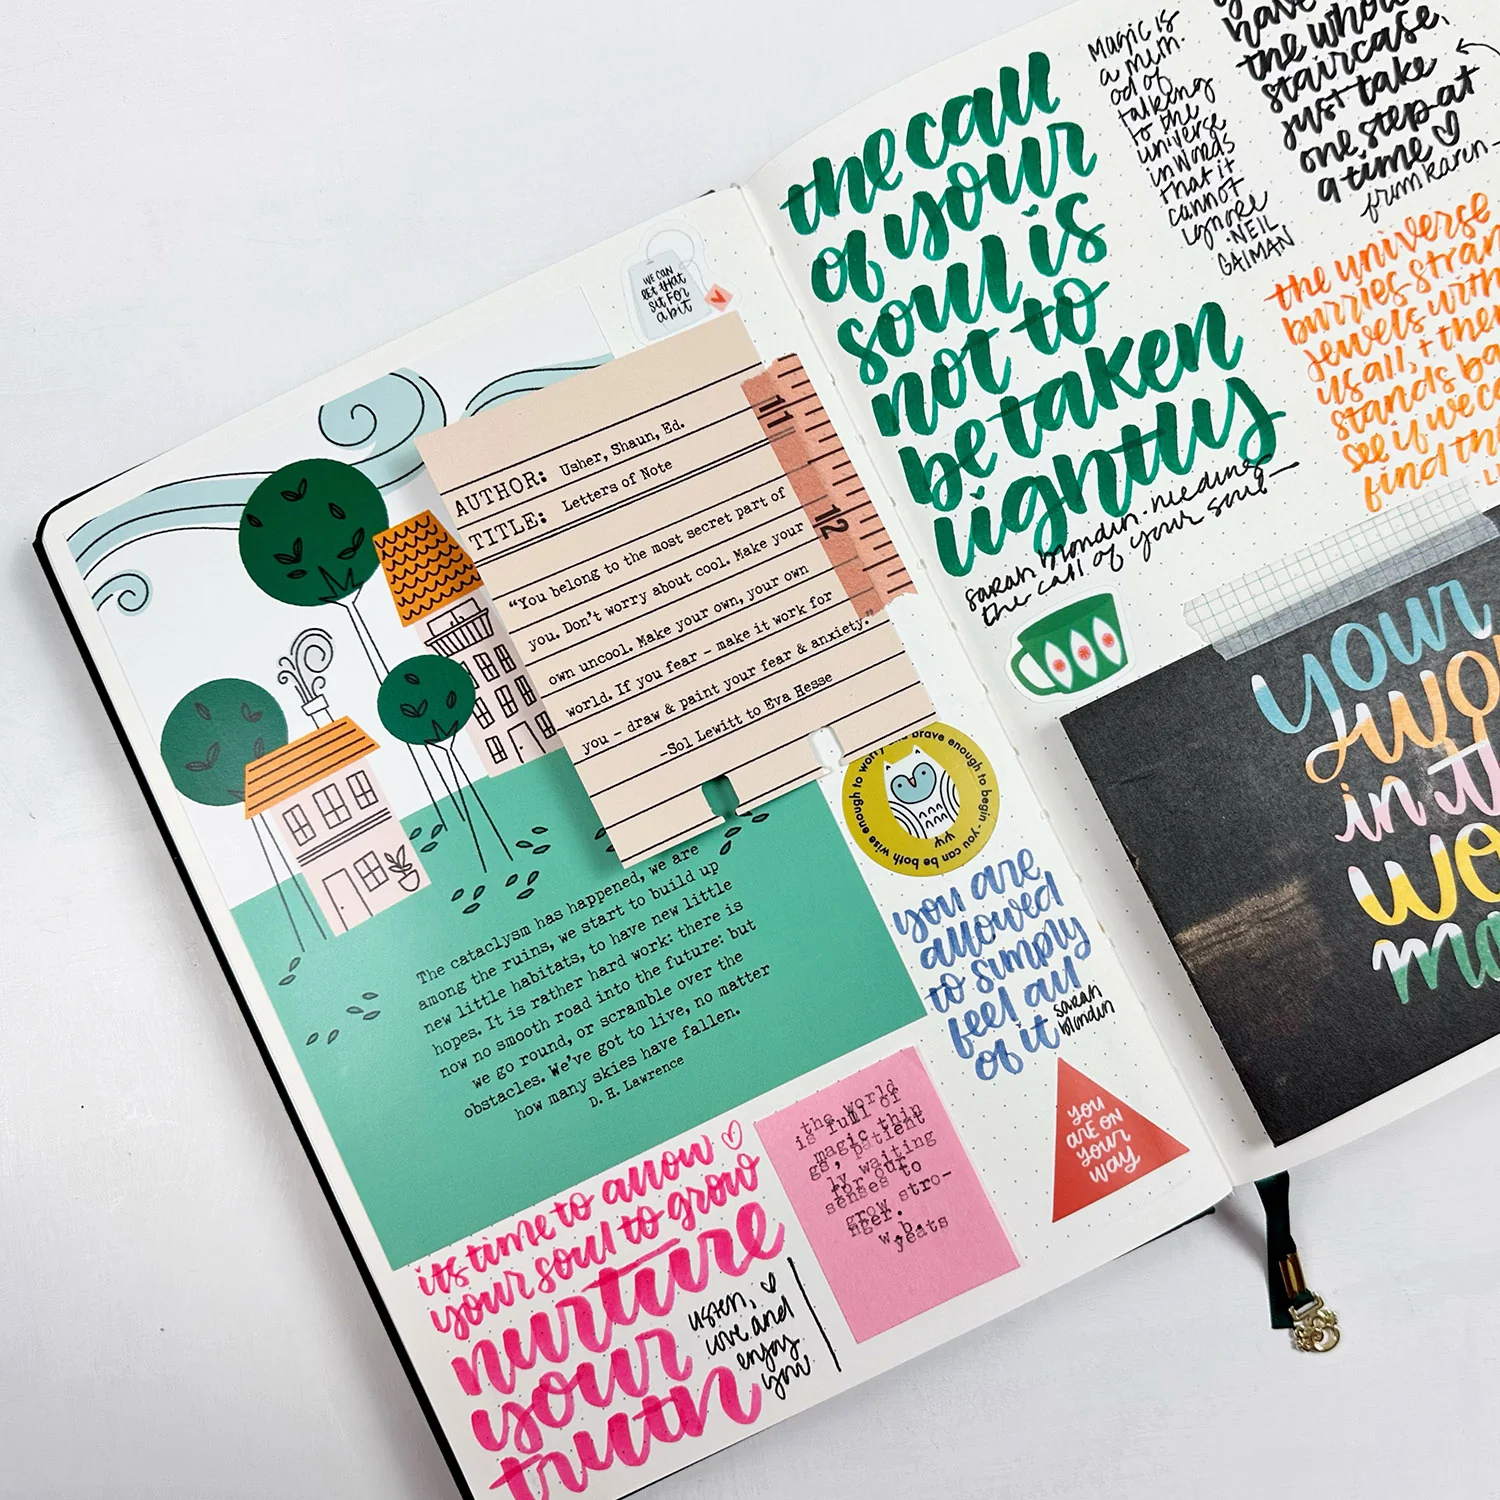 WE CAN
LET THAT
SIT FOR
A BIT
AUTHOR: Usher, Shaun, Ed.
TITLE: Letters of Note
"You belong to the most secret part of
you. Don't worry about cool. Make your
own uncool. Make your own, your own
world. If you fear – make it work for
you – draw & paint your fear & anxiety."
-Sol Lewitt to Eva Hesse
11
12
The cataclysm has happened, we are
among the ruins, we start to build up
new little habitats, to have new little
hopes. It is rather hard work: there is
now no smooth road into the future: but
we go round, or scramble over the
obstacles. We've got to live, no matter
how many skies have fallen.
D. H. Lawrence
its time to allow
your soul to grow
nurture
your
truth
listen,
love and
enjoy
you
the world
is full of
magic thin
gs, patient
ly waiting
for our
senses to
grow stro-
nger.
w.b.
yeats
brave enough to begin - you can be both wise enough to worry
you are
allowed
to simply
feel all
of it
sarah
blondin
you
are on
your
way
the call
of your
soul is
not to
be taken
lightly
sarah blondin. needing
the call of your soul—
Magic is
a meth-
od of
talking
to the
universe
in words
that it
cannot
ignore
-NEIL
GAIMAN
have
the whole
staircase,
just take
one step at
a time
from karen-
the universe
burries stran
jewels with
us all, + then
stands ba
see if we ca
find th
your
wo
in
wo
ma